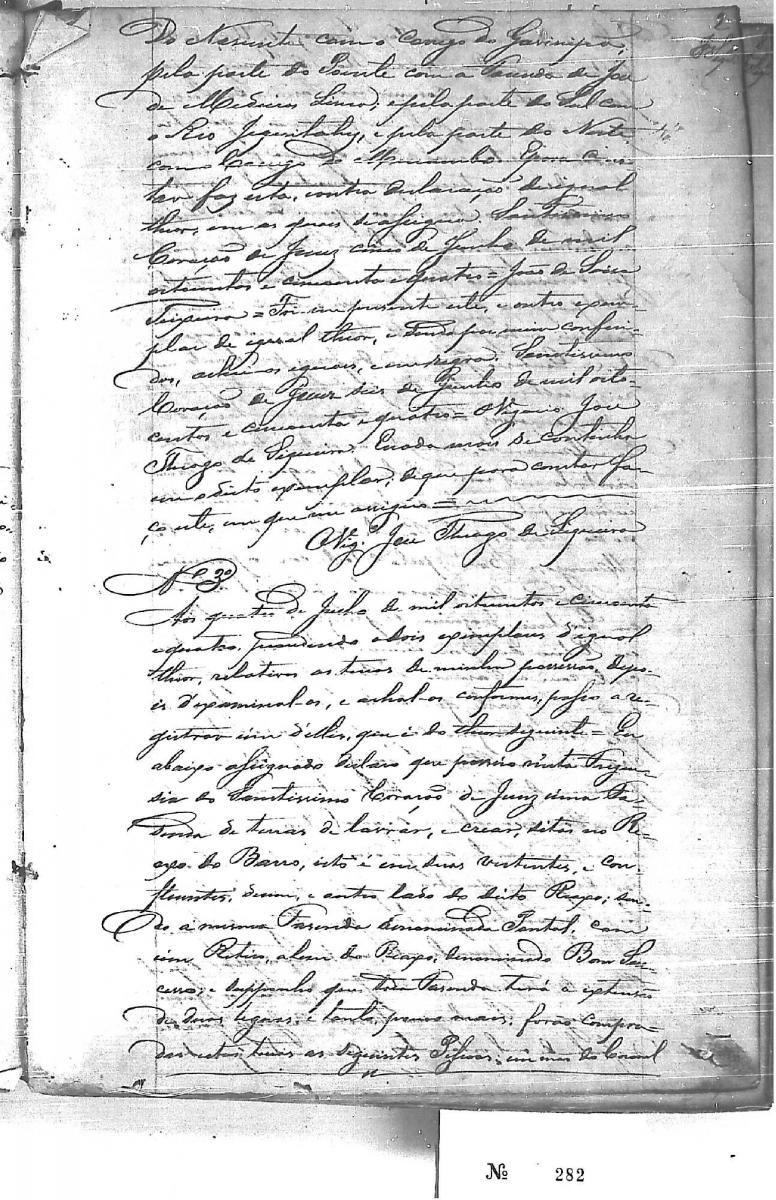 Do Nascente com o Corrego do
pela parte do Poente com a Fazenda de José
de Medeiros Lima, e pela parte do Sul com
o Rio Jequitahy, e pela parte do Norte
com o Corrego do Mucambo. E para cons-
tar fez esta, e outra declaração de igual
theor, em as quais se assigna. Santissimo
Coração de Jesuz cinco de Junho de mil
oitocentos e cincoenta e quatro = João de Souza
Teixeira = Foi me presente este, e outro exem-
plar de igual theor, e sendo por mim conferi-
dos, achei-os iguais, e Santissimo
Coração de Jesuz seis de Junho de mil oito-
centos e cincoenta e quatro = O Vigario José
Thiago de Siqueira. E nada mais se continha
em o dito exemplar, de que para constar fa-
ço este, em que me assigno =
O Vigº José Thiago de Siqueira
Nº 3º
Aos quatro de Julho de mil oitocentos e cincoenta
e quatro, dois exemplares d'igual
theor, relativos as terras de minha possessão, depo-
is d'examinal-os, e achal-os conformes, passo a re-
gistrar um d'elles, que é do theor seguinte = Eu
abaixo assignado declaro que possuo n'esta Fregue-
sia do Santissimo Coração de Jesuz uma Fa-
senda de terras de lavrar, e crear, sitas no Ri-
axo do Barro, isto é em duas vertentes, e con-
fluentes, de um, e outro lado do dito Riaxo; sen-
do a mesma Fazenda denominada Pontal, com
um Retiro, alem do Riaxo, denominado Bom Suc-
cesso; e supponho que toda Fasenda terá a extensão
de duas legoas, e tanto, pouco mais, forão compra-
das estas terras as seguintes Pessoas, em mas do Coronel
Nº 282